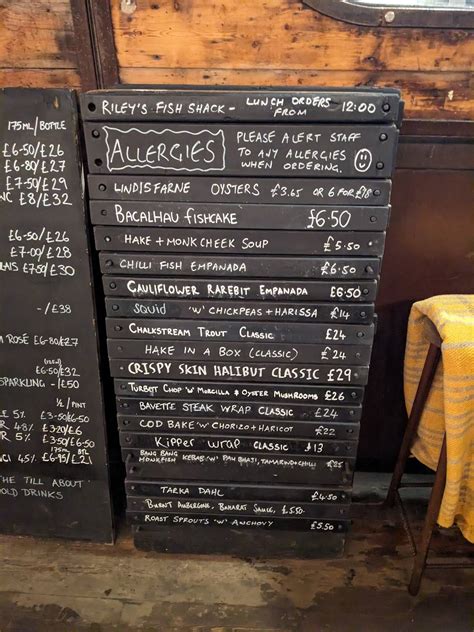 175ML/BOTTLE
£6.50/£26
£6-80/£27
£7-50/£29
£8/£32
£6.50/£26
£7.00/£28
£7.50/£30
-/£38
ROSÉ £6-80/£27
£6.50/£32
SPARKLING -/£50
½ / PINT
5% £3.50/£6.50
4% £3.50/£6.50
5%
175ML BTL
4.5% £6.95/£21
THE TILL ABOUT
OLD DRINKS
RILEY'S FISH SHACK - LUNCH ORDERS FROM 12:00
ALLERGIES
PLEASE ALERT STAFF
TO ANY ALLERGIES
WHEN ORDERING.
LINDISFARNE OYSTERS £3.65 OR 6 FOR £18
BACALHAU FISHCAKE £6.50
HAKE + MONKCHEEK SOUP £5.50
CHILLI FISH EMPANADA £6.50
CAULIFLOWER RAREBIT EMPANADA £6.50
SQUID 'W' CHICKPEAS + HARISSA £14
CHALKSTREAM TROUT CLASSIC £24
HAKE IN A BOX (CLASSIC) £24
CRISPY SKIN HALIBUT CLASSIC £29
TURBOT CHOP 'W' MORCILLA & OYSTER MUSHROOMS £26
BAVETTE STEAK WRAP CLASSIC £24
COD BAKE 'W' CHORIZO + HARICOT £22
KIPPER WRAP CLASSIC £13
BANG BANG
MONKFISH KEBAB 'W' PAV BHAJI, TAMARIND + CHILLI £25
TARKA DAHL £4.50
BURNT AUBERGINE, BAHARAT SAUCE, £5.50
ROAST SPROUTS 'W' ANCHOVY £5.50